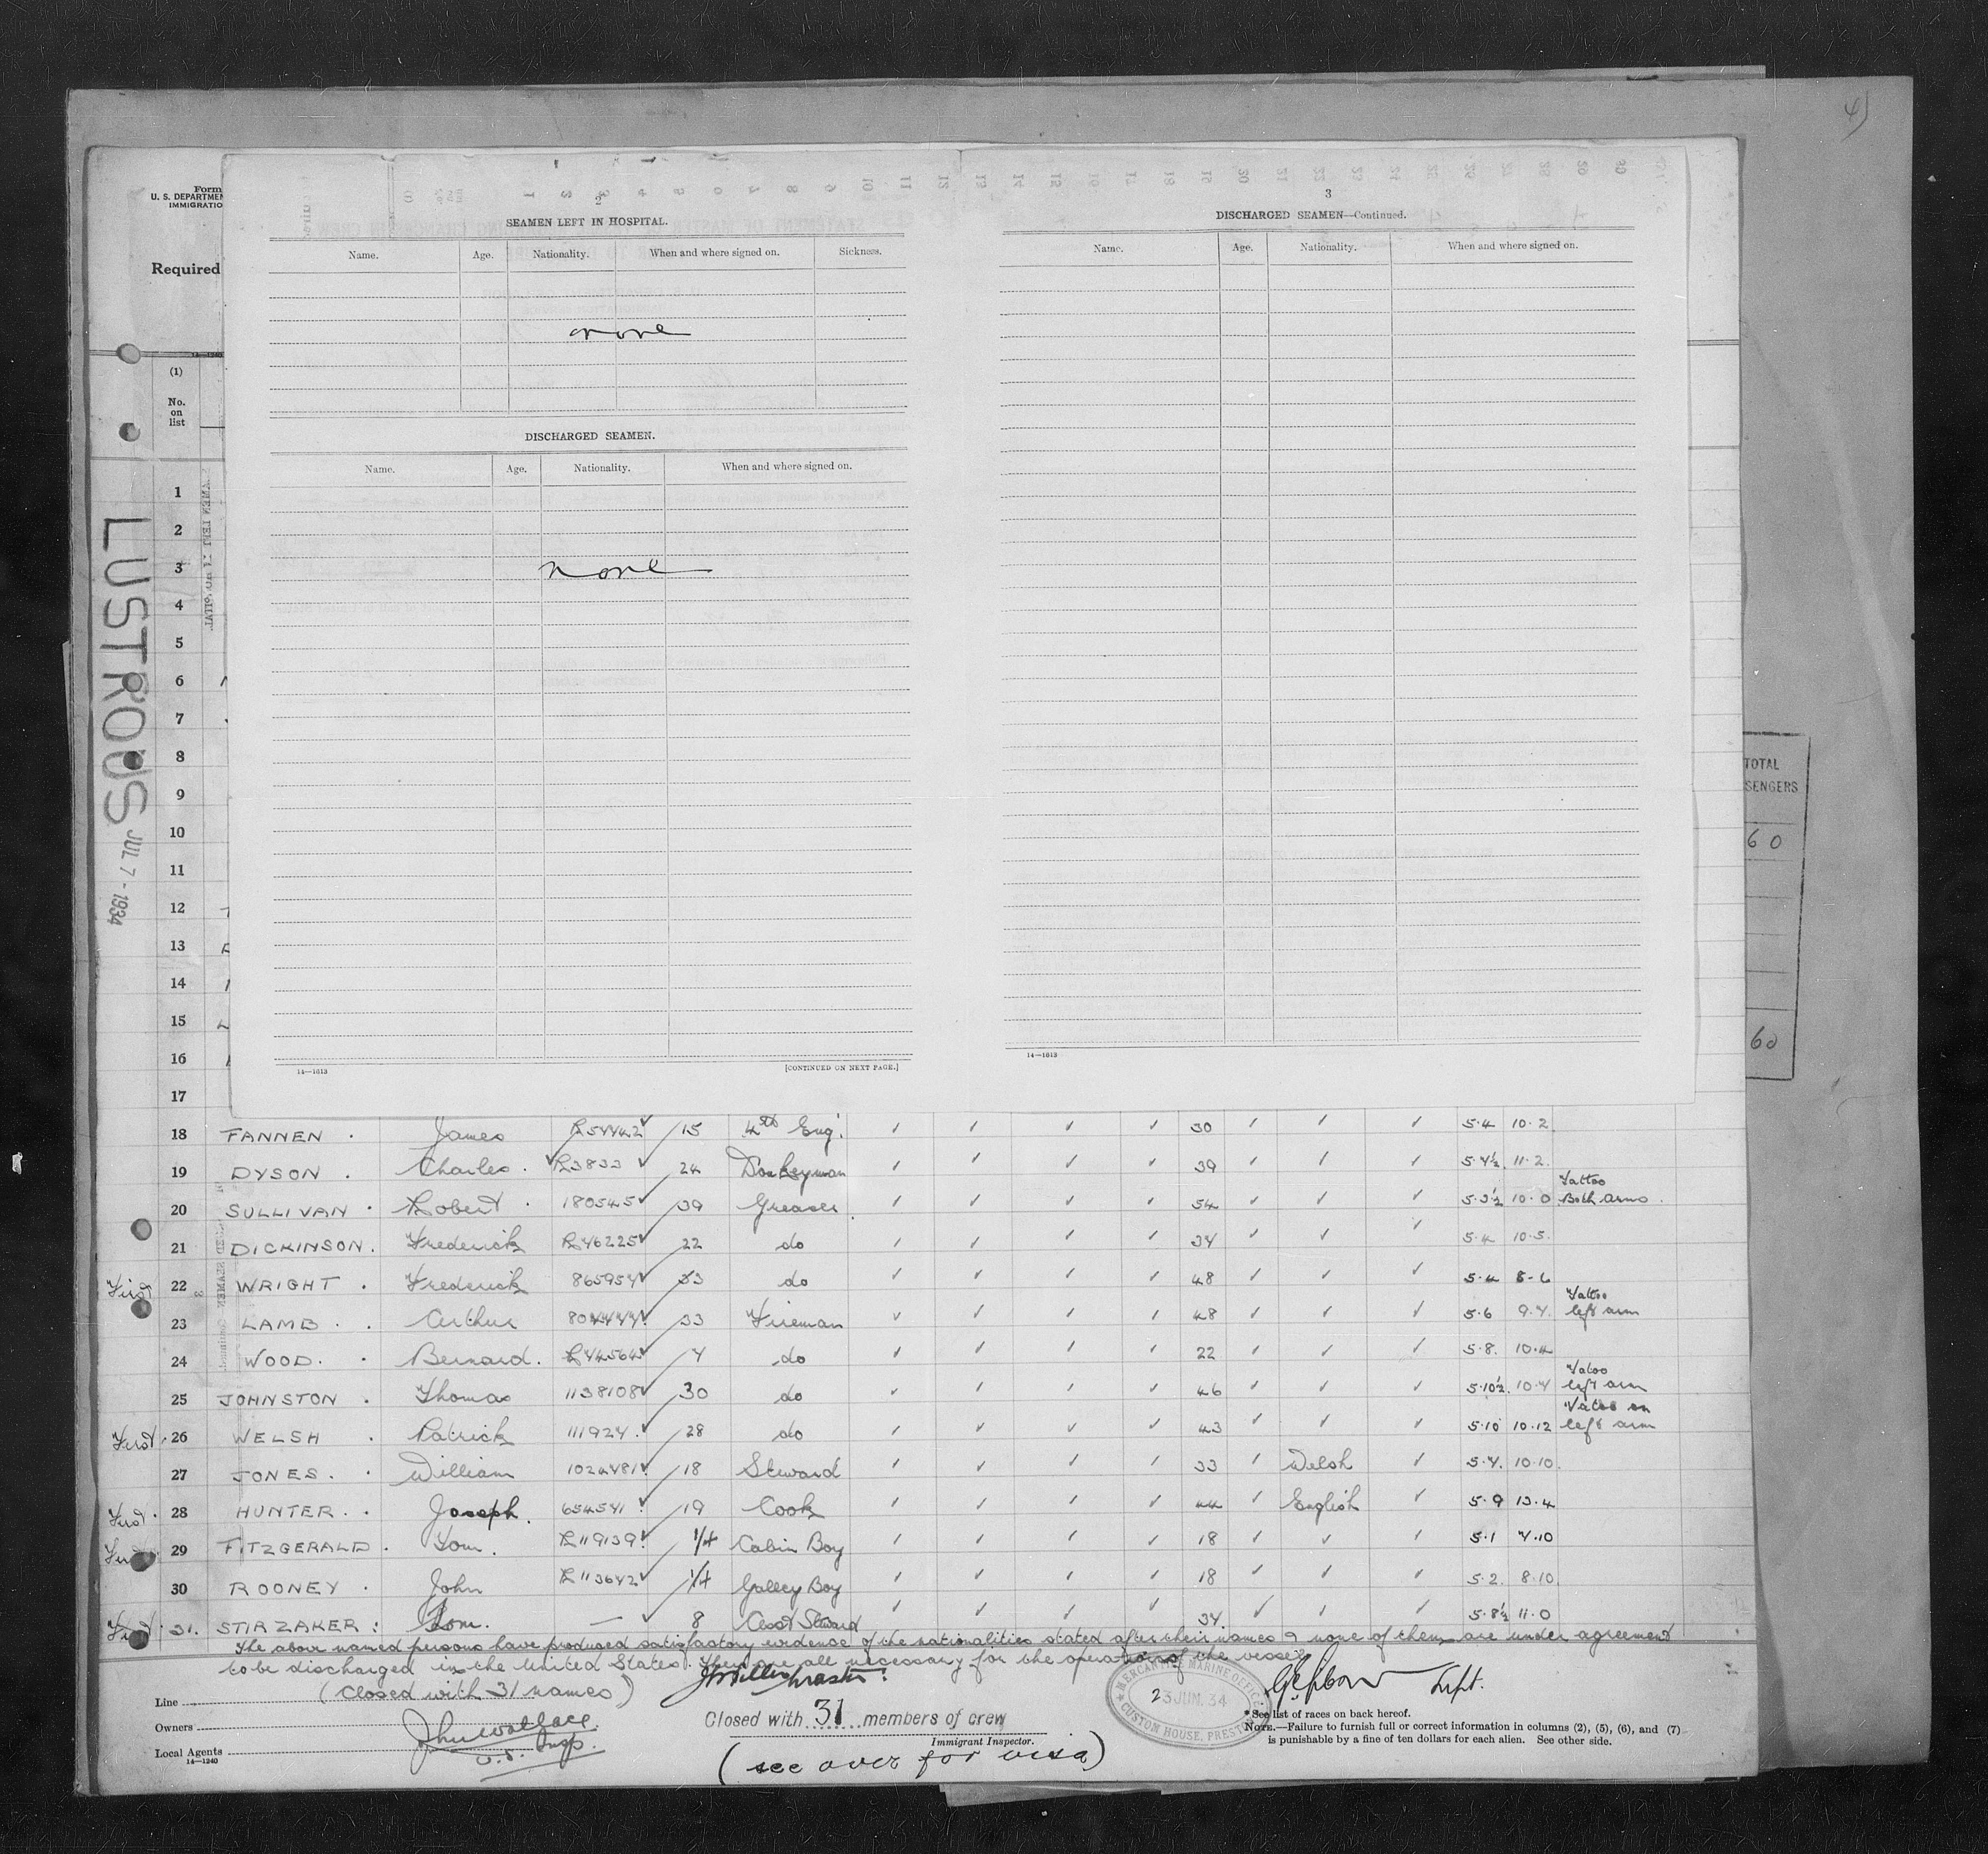 4)
Form
U. S. DEPARTMEN
IMMIGRATIO
Required
14—1240
(1)
No.
on
list
LUSTROUS
JUL 7 - 1934
1
2
3
4
5
6
7
8
9
10
11
12
13
14
15
16
17
2
SEAMEN LEFT IN HOSPITAL.
Name. Age. Nationality. When and where signed on. Sickness.
none
DISCHARGED SEAMEN.
Name. Age. Nationality. When and where signed on.
none
14—1613 [CONTINUED ON NEXT PAGE.]
3
DISCHARGED SEAMEN—Continued.
Name. Age. Nationality. When and where signed on.
14—1613
TOTAL
SENGERS
60
60
18 FANNEN . James R54442 ✓ 15 4th Eng. ✓ ✓ ✓ ✓ 30 ✓ ✓ ✓ 5.4 10.2
19 DYSON . Charles . ✓ R3833 ✓ 24 Donkeyman ✓ ✓ ✓ ✓ 39 ✓ ✓ ✓ 5.4½ 11.2
20 SULLIVAN . Robert . 180545 ✓ 39 Greaser ✓ ✓ ✓ ✓ 54 ✓ ✓ ✓ 5.3½ 10.0 Tattoo Both arms
21 DICKINSON . Frederick R46225 ✓ 22 do ✓ ✓ ✓ ✓ 34 ✓ ✓ ✓ 5.4 10.5
First 22 WRIGHT . Frederick 865954 ✓ 33 do ✓ ✓ ✓ ✓ 48 ✓ ✓ ✓ 5.4 8-6
23 LAMB . . Arthur 33 Fireman ✓ ✓ ✓ ✓ 48 ✓ ✓ ✓ 5.6 9.4 Tattoo left arm
24 WOOD . . Bernard . R44564 ✓ 4 do ✓ ✓ ✓ ✓ 22 ✓ ✓ ✓ 5.8. 10.4
25 JOHNSTON . Thomas 1138108 ✓ 30 do ✓ ✓ ✓ ✓ 46 ✓ ✓ ✓ 5.10½ 10.4 Tatoo left arm
First . 26 WELSH . Patrick 111924 . ✓ 28 do ✓ ✓ ✓ ✓ 43 ✓ ✓ ✓ 5.10 10.12 Tatoo on left arm
27 JONES . . William 1024481 ✓ 18 Steward ✓ ✓ ✓ ✓ 33 ✓ Welsh ✓ 5.4. 10.10
First . 28 HUNTER . . Joseph . 654541 ✓ 19 Cook ✓ ✓ ✓ ✓ 44 ✓ English ✓ 5.9 13.4
First 29 FITZGERALD . Tom . R119139 ✓ 1/4 Cabin Boy ✓ ✓ ✓ ✓ 18 ✓ ✓ ✓ 5.1 7.10
30 ROONEY . John R113642 ✓ 1/4 Galley Boy ✓ ✓ ✓ ✓ 18 ✓ ✓ ✓ 5.2. 8.10
First . 31. STIRZAKER : Tom. — ✓ 8 Asst Steward ✓ ✓ ✓ ✓ 34 ✓ ✓ ✓ 5.8½ 11.0
The above named persons have produced satisfactory evidence of the nationalities stated after their names & none of them are under agreement
to be discharged in the United States. They are all necessary for the operation of the vessel
(Closed with 31 names)
Master.
MERCANTILE MARINE OFFICE
23 JUN. 34
CUSTOM HOUSE, PRESTON
Supt.
Line
Owners
Local Agents
14—1240
John Wallace
U.S. Insp.
Closed with 31 members of crew
Immigrant Inspector.
(see over for visa)
* See list of races on back hereof.
NOTE.—Failure to furnish full or correct information in columns (2), (5), (6), and (7)
is punishable by a fine of ten dollars for each alien. See other side.